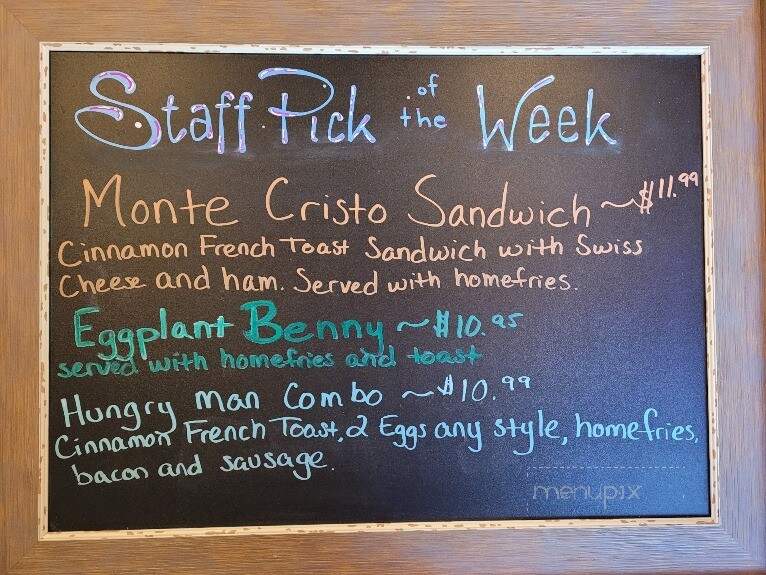 Staff Pick of the Week
Monte Cristo Sandwich ~ $11.99
Cinnamon French Toast Sandwich with Swiss
Cheese and ham. Served with homefries.
Eggplant Benny ~ $10.95
served with homefries and toast
Hungry Man Combo ~ $10.99
Cinnamon French Toast, 2 Eggs any style, homefries,
bacon and sausage.
menupix